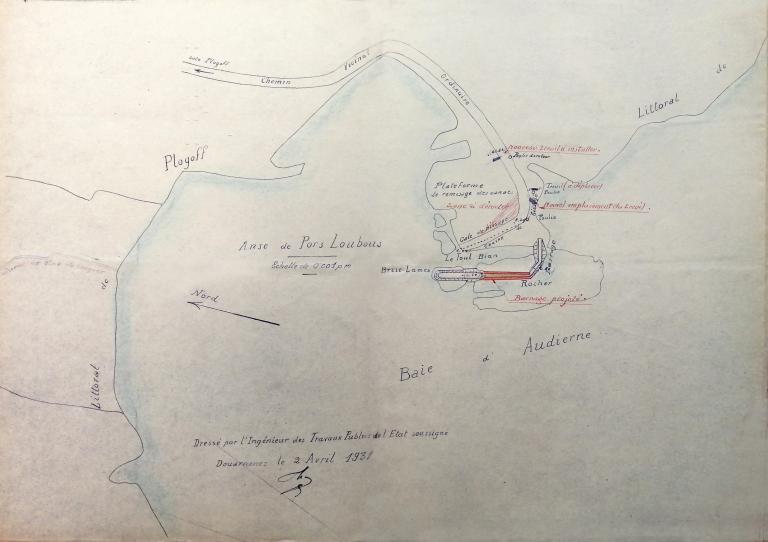 vers Plogoff
Chemin
Vicinal
Ordinaire
Littoral
de
Plogoff
Nouveau treuil à installer.
Plateforme
de remisage des canots
Treuil à déplacer
Poulie
Zone à dérocher
Nouvel emplacement du treuil.
Poulie
Cale de halage
Le Toul Bian
Barrage
Anse de Pors Loubous
Echelle de 0.001 p m
Brise-Lames
Rocher
Barrage projeté.
Nord
de
Littoral
Baie d' Audierne
Dressé par l'Ingénieur des Travaux Publics de l'Etat soussigné
Douarnenez le 2 Avril 1931